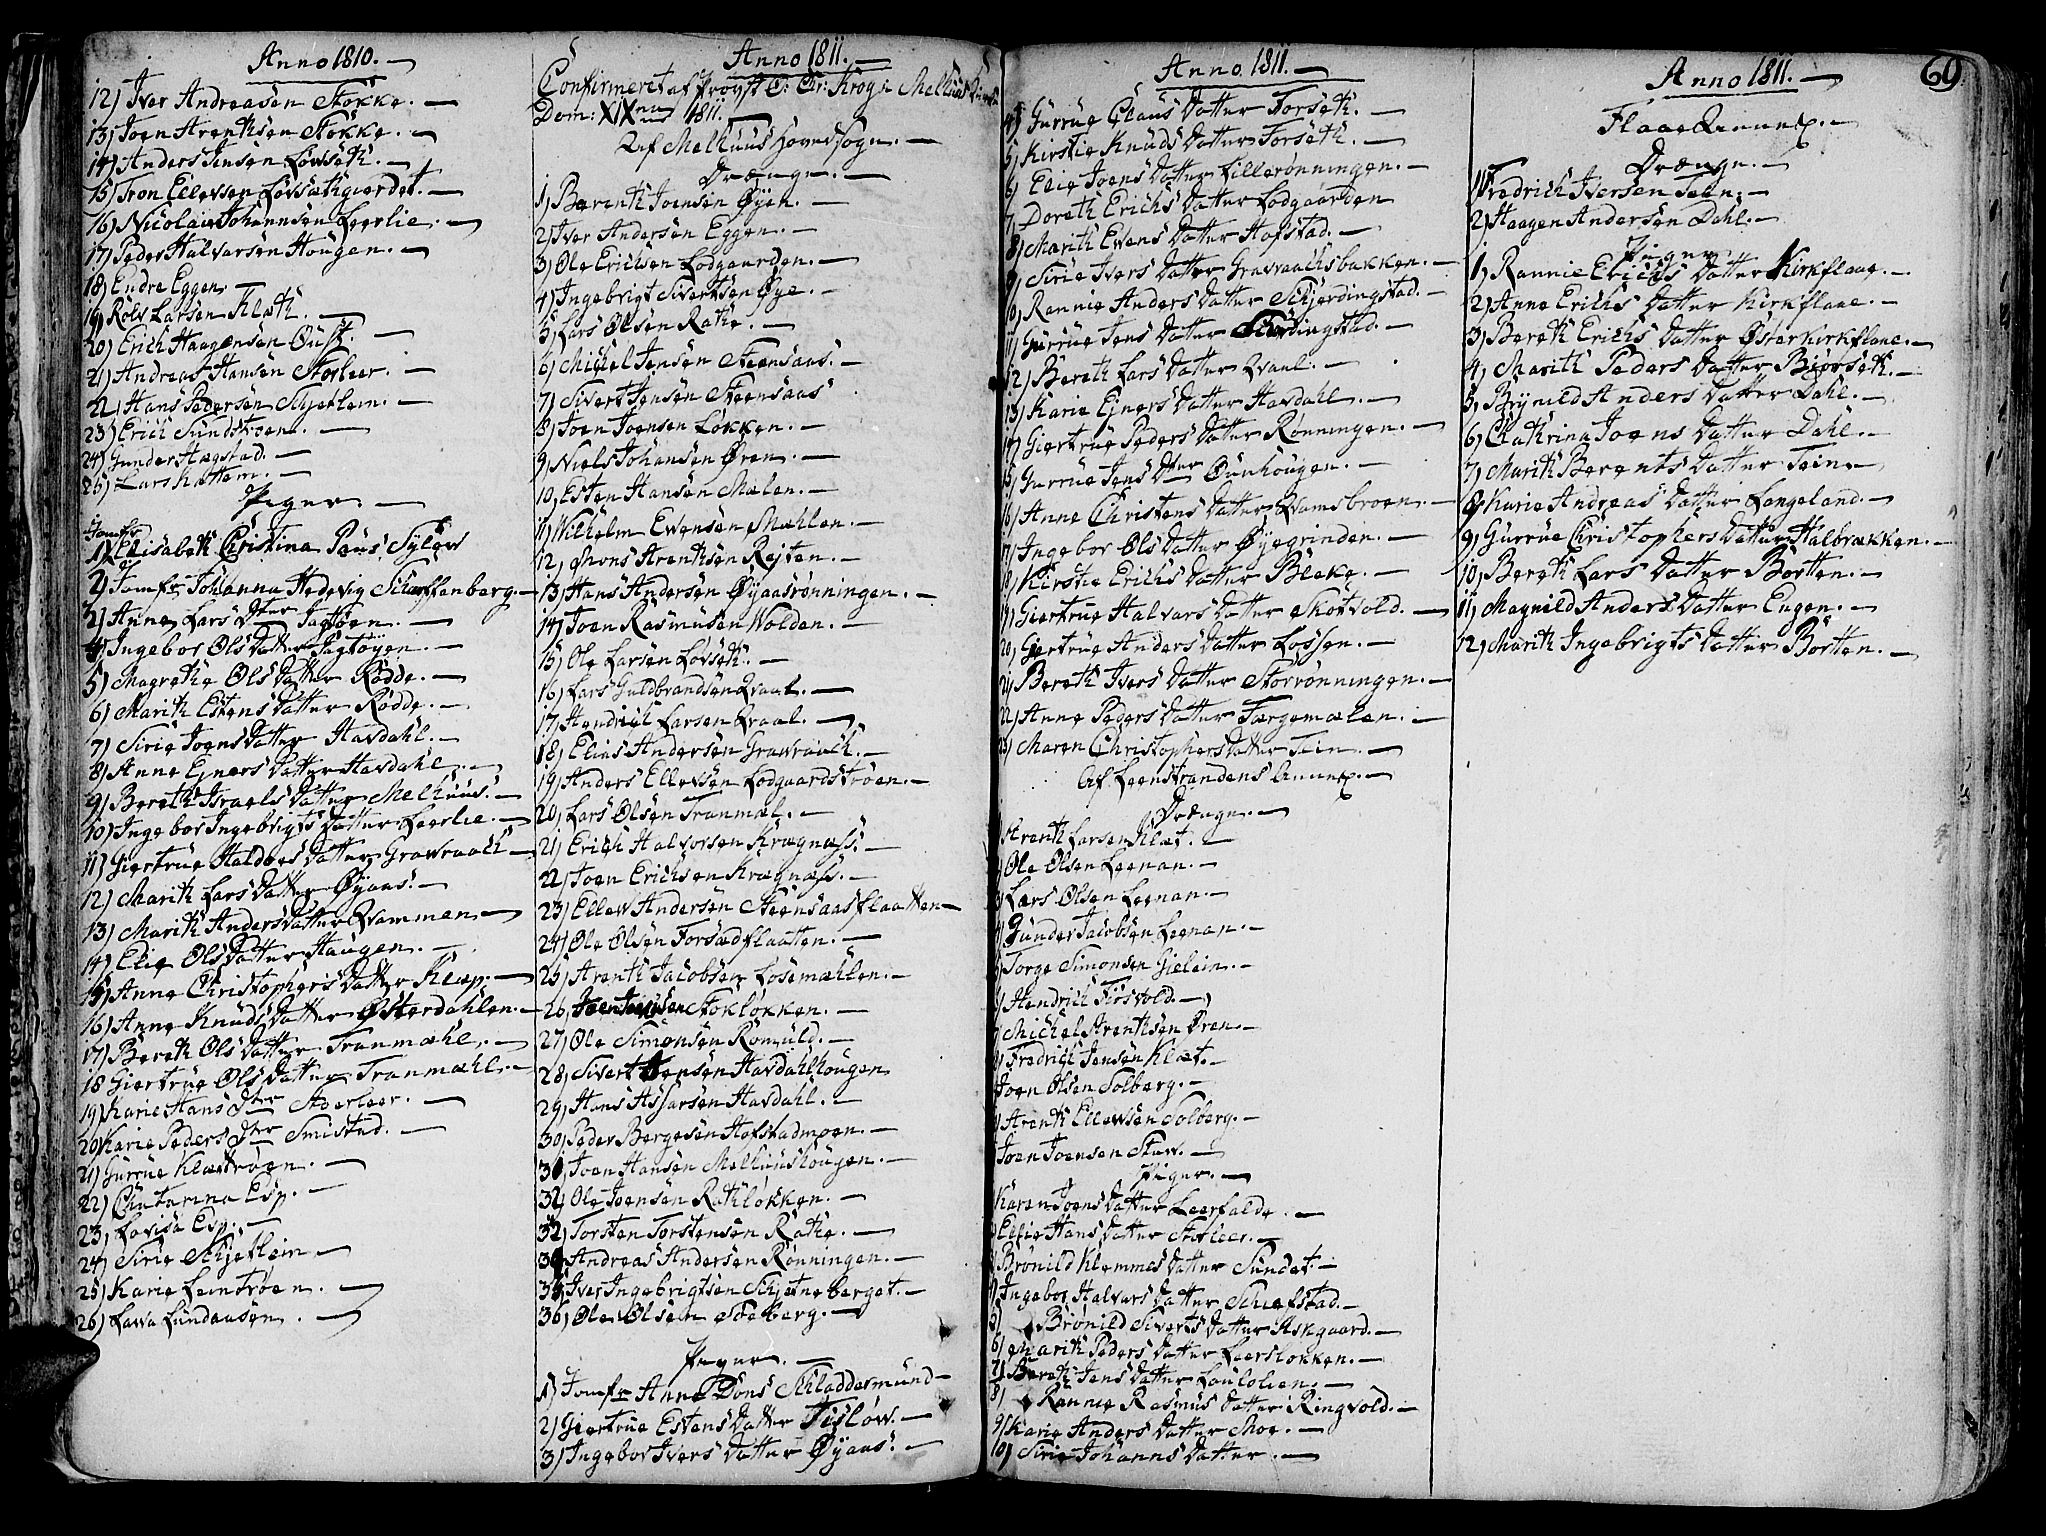 Anno 1810.
12) Iver Andreasen Støkke.
13) Joen Arentsen Støkke.
14) Anders Jensen Løvseth.
15) Tron Ellevsen Løvsethgierdet.
16) Nicolai Johannsen Leerlie.
17) Peder Halvarsen Hougen.
18) Endre Eggen
19) Rolv Larsen Klæth.
20) Erich Haagensen Øust.
21) Andreas Hansen Storleer.
22) Hans Pedersen Schjetlem.
23) Erich Sundstøen.
24) Gunder Hægstad.
25) Lars Hattem.
Piger.
Jomfr
1) Elisabeth Christina Sylow
2) Jomfr Johanna Hedevig Schaffenberg.
3) Anne Lars Dtter Jagtøen.
4) Ingebor Ols Datter Jagtøyen.
5) Magrethe Ols Datter Rødde.
6) Marith Estens Datter Rødde.
7) Sirie Joens Datter Havdahl.
8) Anne Ejners Datter Havdahl.
9) Bereth Israels Datter Melhuus.
10) Ingebor Ingebrigts Datter Leerlie.
11) Giertrue Haldoes Datter Gravraach
12) Marith Lars Datter Øyaas.
13) Marith Anders Datter Qvammen
14) Elie Ols Datter Haugen.
15) Anne Christophers Datter Klap.
16) Anne Knuds Datter Østerdahlen.
17) Bereth Ols Datter Tranmæhl.
18 Giertrue Ols Datter Tranmæhl.
19) Karie Hans Dtter Storleer.
20) Karie Peders Dtr Smistad.
21) Gurrue Klætrøen.
22) Chatarina Esp.
23) Lovisa Esp.
24) Sirie Schjetlein
25) Karie Leinstrøen.
26) Lava Lundaasen.
Anno 1811.
Confirmeret af Provst C: Chr: Krog i Melhuus Kirke
Dom: XIX 1811.
Af Melhuus Hovedsogn.
Drænge.
1) Berenth Joensen Øyen.
2) Iver Andersen Eggen.
3) Ole Erichsen Lodgaarden.
4) Ingebrigt Sivertsen Øye.
5) Lars Olsen Rathe.
6) Michel Jensen Steensaas.
7) Sivert Jensen Steensaas
8) Joen Joensen Løkken.
9) Niels Johansen Øren.
10) Esten Hansen Mælen.
11) Wilhelm Evensen Mæhlen.
12) Mons Arentsen Rejten.
13) Hans Andersen Øyaasrønningen.
14) Joen Rasmusen Wolden.
15) Ole Larsen Løvseth.
16) Lars Guldbrandsen Qvaal.
17) Hendrich Larsen Qvaal.
18) Elias Andersen Gravraach.
19) Anders Ellevsen Lodgaardstrøen.
20) Lars Olsen Tranmæl.
21) Erich Halvorsen Krægnæss.
22) Joen Erichsen Krægnæss.
23) Ellev Andersen Steensaasflaatten
24) Ole Olsen Forsædflaatten.
25) Arenth Jacobsen Losemæhlen.
26) Joen Jensen Stokløkken.
27) Ole Simonsen Romuld.
28) Sivert Jensen Havdahlhougen
29) Hans Assersen Havdahl.
30) Peder Bergesen Hofstadmoen.
31) Joen Hansen Melhuushougen.
32) Ole Joensen Rathløkken.
32) Torsten Torstensen Rathe.
34) Andreas Andersen Rønningen.
35) Iver Ingebrigtsen Schjetneberget.
36) Ole Olsen Søeberg.
Piger.
1) Jomfr Anne Døns Schladdermund
2) Giertrue Estens Datter Tisløw.
3) Ingebor Ivers Datter Øyaas.
Anno 1811.
4) Gurrue Claus Datter Forseth.
5) Kirstie Knuds Datter Forseth.
6) Elie Joens Datter Lillerønningen.
7) Doreth Erichs Datter Lodgaarden
8) Marith Evens Datter Hofstad.
9) Sirie Ivers Datter Gravraachsbakken.
10) Rannie Anders Datter Schjerdingstad.
11) Gurrue Jens Datter Schjerdingstad.
12) Bereth Lars Datter Qvaal.
13) Karie Ejners Datter Havdahl.
14) Giertrue Peders Datter Rønningen.
15) Gurrue Jens Dtter Øunhougen.
16) Anne Christens Datter Qvamsbroen.
17) Ingebor Ols Datter Øyegrinden.
18) Kirstie Erichs Datter Bleke.
19) Giertrue Halvars Datter Skotvold.
20) Giertrue Anders Datter Lossen.
21) Bereth Ivers Datter Storrønningen.
22) Anne Peders Datter Færgemælen.
23) Maren Christophers Datter Tein.
Af Leenstrandens Annex.
Drænge.
Arenth Larsen Klæt.
Ole Olsen Leenan.
Lars Olsen Leenan.
Gunder Jacobsen Leenan.
Torge Simonsen Gielein.
Hendrich Fiosvold.
Michel Arentsen Øren.
Fredrich Jensen Klæt.
Joen Olsen Solberg.
Arenth Ellevsen Solberg.
Joen Joensen Stav.
Piger.
Karen Joens Datter Leerfalde.
Ellie Hans Datter Storleer.
Brønild Klemmes Datter Sundet.
Ingebor Halvars Datter Schefstad.
5) Brønild Siverts Datter Askgaard.
6) Marith Peders Datter Leersløkken.
7) Bereth Jens Datter Louløkken.
8) Rannie Rasmus Datter Ringvold.
9) Karie Anders Datter Moe.
10) Sirie Johanns Datter.
Anno 1811.
60.
Flaae Annex.
Drænge.
1) Fredrich Iversen Tein.
2) Haagen Andersen Dahl.
Piger
1) Rannie Erichs Datter Kirkflaae.
2) Anne Erichs Datter Kirkflaae.
3) Bereth Erichs Datter Østerkirkflaae.
4) Marith Peders Datter Biørseth.
5) Brynild Anders Datter Dahl.
6) Chathrina Joens Datter Dahl.
7) Marith Berents Datter Tein
8) Karie Andreas Datter Langeland.
9) Gurrue Christophers Datter Halbrækken.
10) Bereth Lars Datter Bortten.
11) Magnild Anders Datter Eugen.
12) Marith Ingebrigts Datter Bortten.